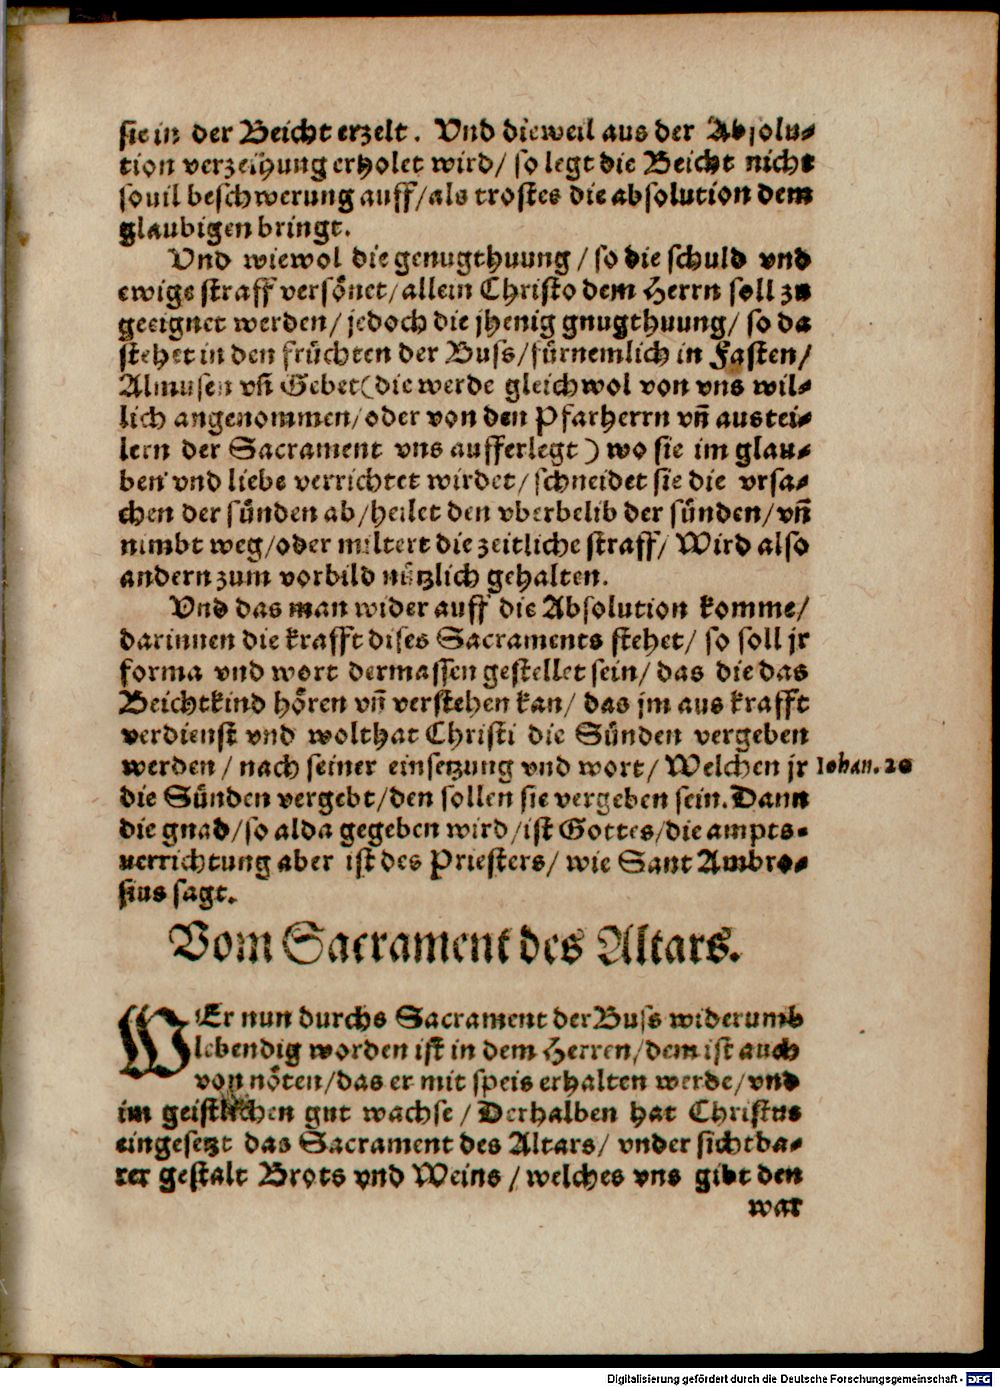 sie in der Beicht erzelt. Vnd dieweil aus der Absolu-
tion verzeihung erholet wird/ so legt die Beicht nicht
souil beschwerung auff/als trostes die absolution dem
glaubigen bringt.
Vnd wiewol die genugthuung/so die schuld vnd
ewige straff versönet/allein Christo dem Herrn soll zu
geeignet werden/ jedoch die jhenig gnugthuung/ so da
stehet in den früchten der Buss/fürnemlich in Fasten/
Almusen vñ Gebet(die werde gleichwol von vns wil-
lich angenommen/oder von den Pfarherrn vñ austei-
lern der Sacrament vns aufferlegt) wo sie im glau-
ben vnd liebe verrichtet wirdet/ schneidet sie die vrsa-
chen der sünden ab/heilet den vberbelib der sünden/vñ
nimbt weg/oder miltert die zeitliche straff/ Wird also
andern zum vorbild nützlich gehalten.
Vnd das man wider auff die Absolution komme/
darinnen die krafft dises Sacraments stehet/ so soll jr
forma vnd wort dermassen gestellet sein/ das die das
Beichtkind hören vñ verstehen kan/ das jm aus krafft
verdienst vnd wolthat Christi die Sünden vergeben
werden/ nach seiner einsetzung vnd wort/ Welchen jr Iohan. 20
die Sünden vergebt/den sollen sie vergeben sein. Dann
die gnad/so alda gegeben wird/ist Gottes/die ampts-
uerrichtung aber ist des Priesters/ wie Sant Ambro-
sius sagt.
Vom Sacrament des Altars.
WEr nun durchs Sacrament der Buss widerumb
lebendig worden ist in dem Herren/dem ist auch
von nöten/das er mit speis erhalten werde/vnd
im geistlichen gut wachse/ Derhalben hat Christus
eingesetzt das Sacrament des Altars/ vnder sichtba-
rer gestalt Brots vnd Weins/welches vns gibt den
war
Digitalisierung gefördert durch die Deutsche Forschungsgemeinschaft - DFG